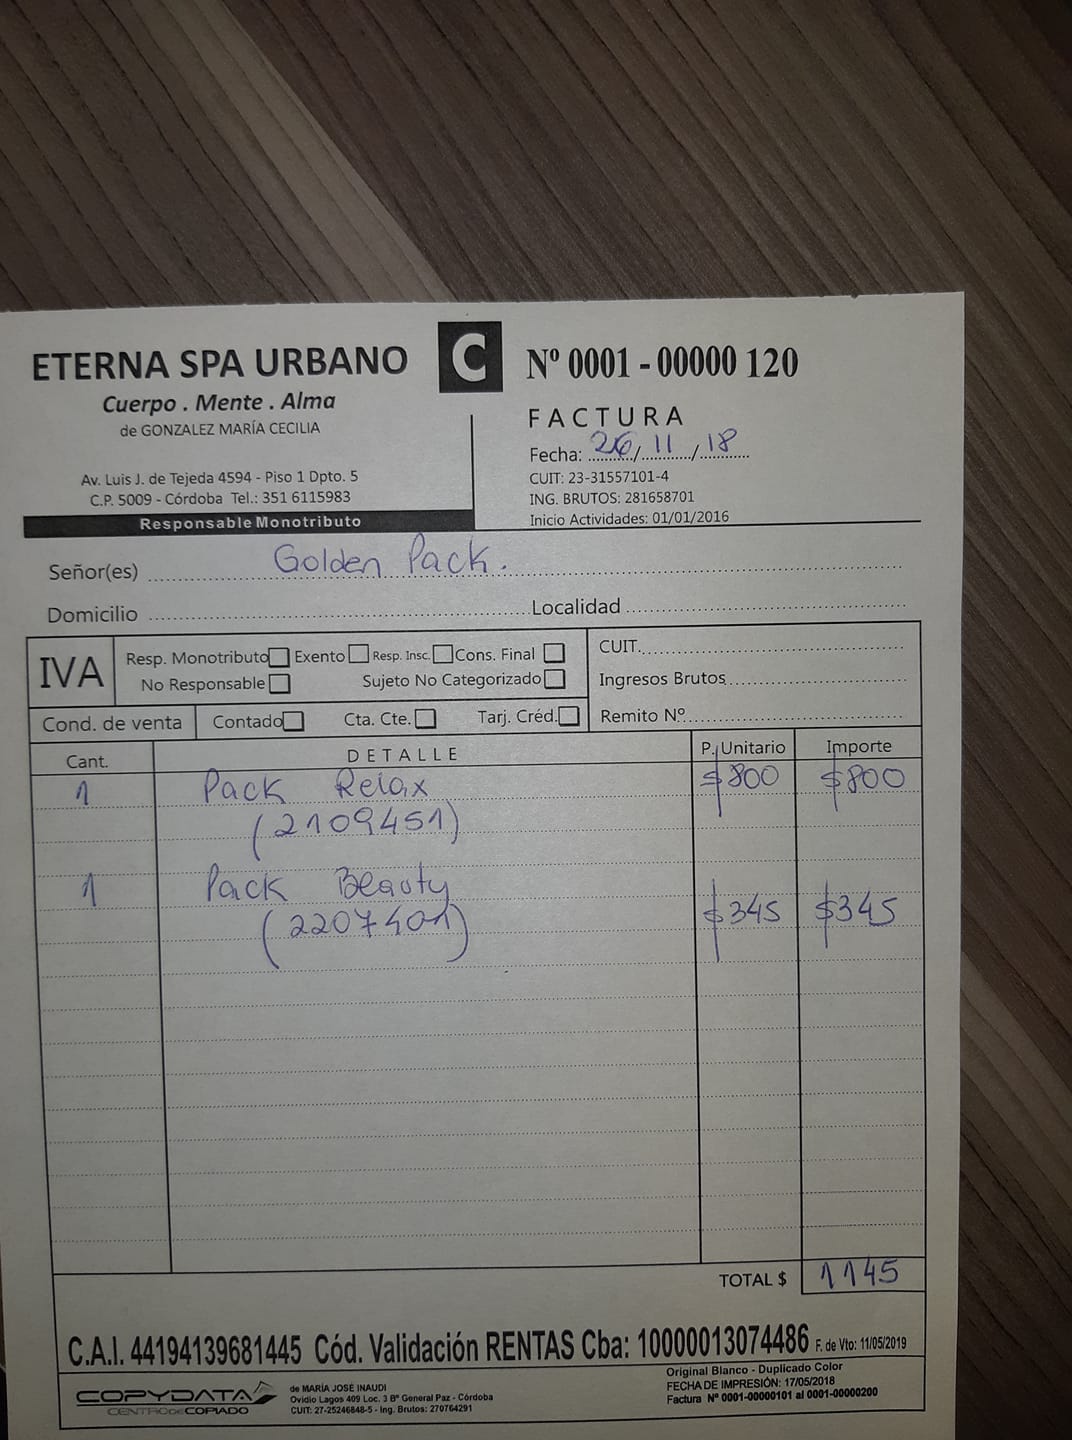 ETERNA SPA URBANO
Cuerpo . Mente . Alma
de GONZALEZ MARÍA CECILIA
Av. Luis J. de Tejeda 4594 - Piso 1 Dpto. 5
C.P. 5009 - Córdoba Tel.: 351 6115983
Responsable Monotributo
C
Nº 0001 - 00000 120
FACTURA
Fecha: 26/11/18
CUIT: 23-31557101-4
ING. BRUTOS: 281658701
Inicio Actividades: 01/01/2016
Señor(es) Golden Pack.
Domicilio Localidad
IVA
Resp. Monotributo Exento Resp. Insc. Cons. Final
No Responsable Sujeto No Categorizado
CUIT.
Ingresos Brutos
Cond. de venta Contado Cta. Cte. Tarj. Créd. Remito Nº
Cant. DETALLE P. Unitario Importe
1 Pack Relax $800 $800
(2109451)
1 Pack Beauty
(2207401) $345 $345
TOTAL $ 1145
C.A.I. 44194139681445 Cód. Validación RENTAS Cba: 10000013074486 F. de Vto: 11/05/2019
COPYDATA
CENTRO DE COPIADO
de MARÍA JOSÉ INAUDI
Ovidio Lagos 409 Loc. 3 Bº General Paz - Córdoba
CUIT: 27-25246848-5 - Ing. Brutos: 270764291
Original Blanco - Duplicado Color
FECHA DE IMPRESIÓN: 17/05/2018
Factura Nº 0001-00000101 al 0001-00000200